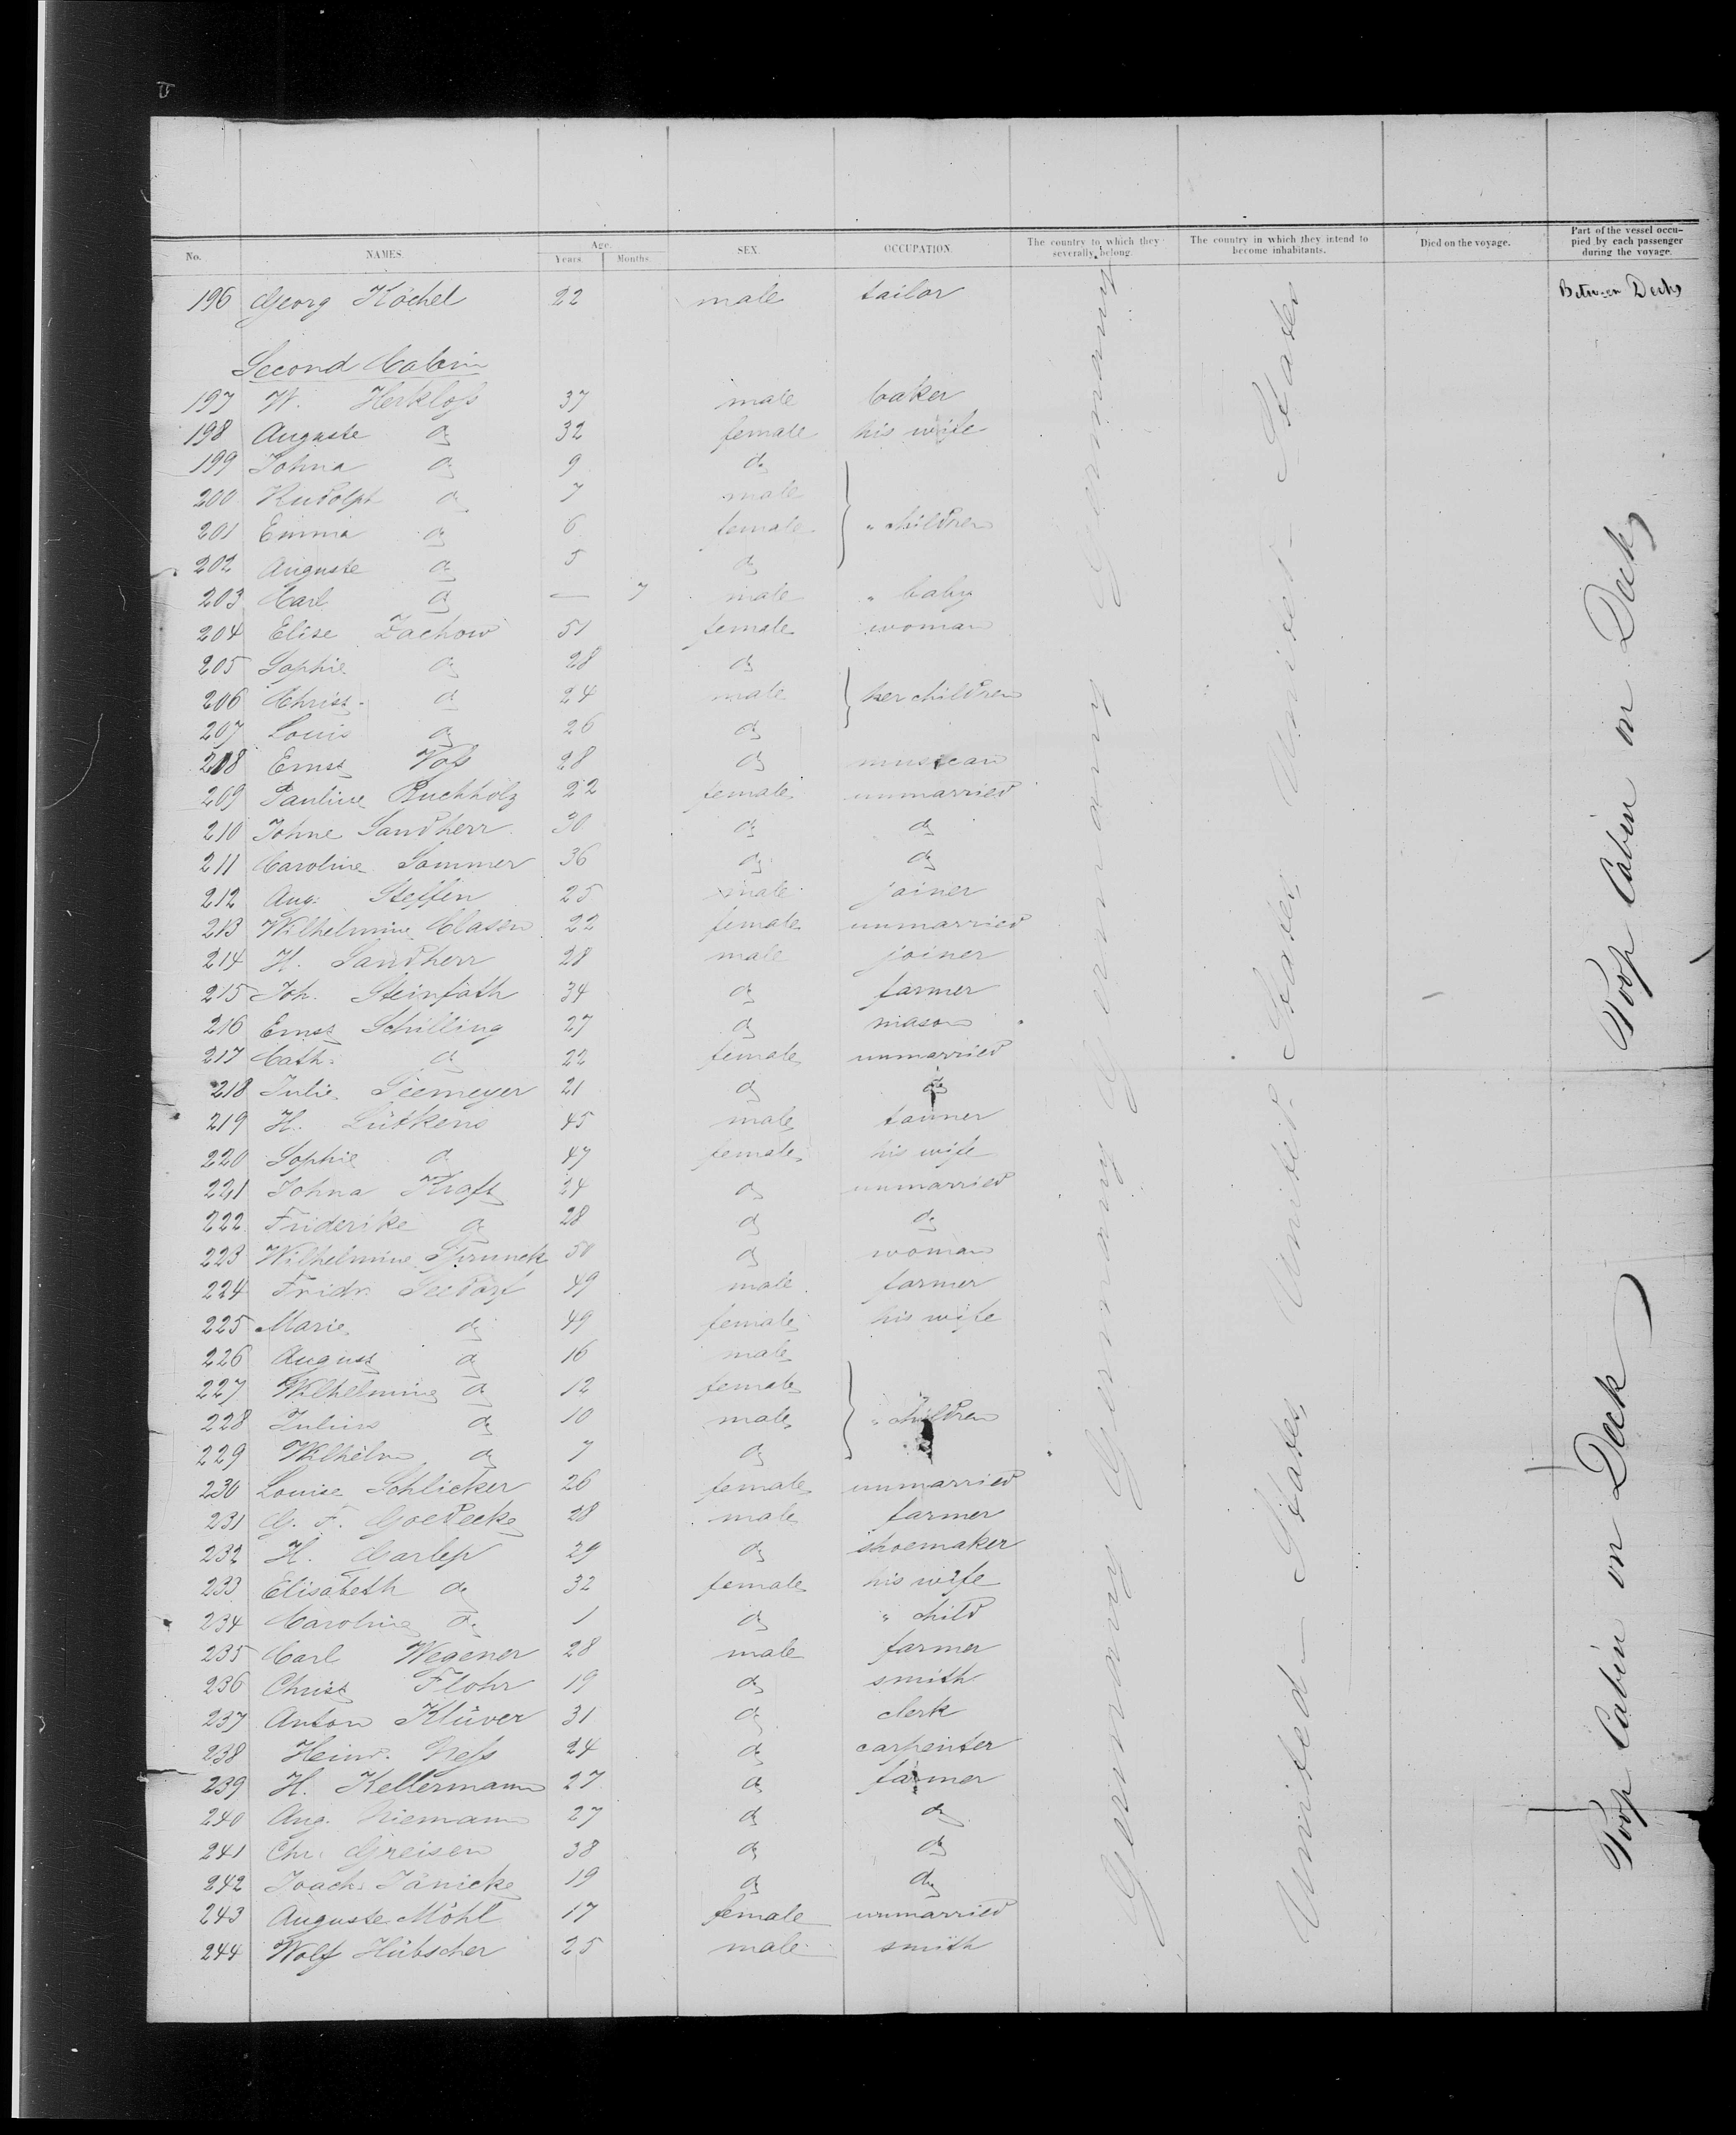 No. NAMES. Age. Years. Months. SEX. OCCUPATION. The country to which they severally belong. The country in which they intend to become inhabitants. Died on the voyage. Part of the vessel occupied by each passenger during the voyage.
196 Georg Köchel 22 male tailor Between Decks
Second Cabin
197 W. Herkloss 37 male baker
198 Auguste do 32 female his wife
199 Johna do 9 do
200 Rudolph do 7 male
201 Emma do 6 female " children
202 Auguste do 5 do
203 Carl do — 7 male " baby
204 Elise Zachow 51 female woman
205 Sophie do 28 do
206 Christ. do 24 male her children
207 Louis do 26 do
208 Ernst Voss 28 do musican
209 Pauline Buchholz 22 female unmarried
210 Johne Sandherr 30 do do
211 Caroline Sommer 36 do do
212 Aug. Steffen 25 male joiner
213 Wilhelmine Clasen 22 female unmarried
214 H. Sandherr 28 male joiner
215 Joh. Steinfath 34 do farmer
216 Ernst Schilling 27 do mason
217 Cath. do 22 female unmarried
218 Julie Seemeyer 21 do do
219 H. Lütkens 45 male farmer
220 Sophie do 47 female his wife
221 Johna Kraft 24 do unmarried
222 Friderike do 28 do do
223 Wilhelmine 50 do woman
224 Fridr. Seedorf 49 male farmer
225 Marie do 49 female his wife
226 August do 16 male
227 Wilhelmine do 12 female
228 Julius do 10 male " children
229 Wilhelm do 7 do
230 Louise Schlicker 26 female unmarried
231 G. F. Goedecke 28 male farmer
232 H. Garlep 29 do shoemaker
233 Elisabeth do 32 female his wife
234 Caroline do 1 do " child
235 Carl Wegener 28 male farmer
236 Christ Flohr 19 do smith
237 Anton Klüver 31 do clerk
238 Heinr. Hess 24 do carpenter
239 H. Kellermann 27 do farmer
240 Aug. Niemann 27 do do
241 Chr. Greisen 38 do do
242 Joach. Jänicke 19 do do
243 Auguste Möhl 17 female unmarried
244 Wolf Hübscher 25 male smith
Germany Germany Germany Germany
United States United States United States
Poop Cabin on Deck
Poop Cabin on Deck